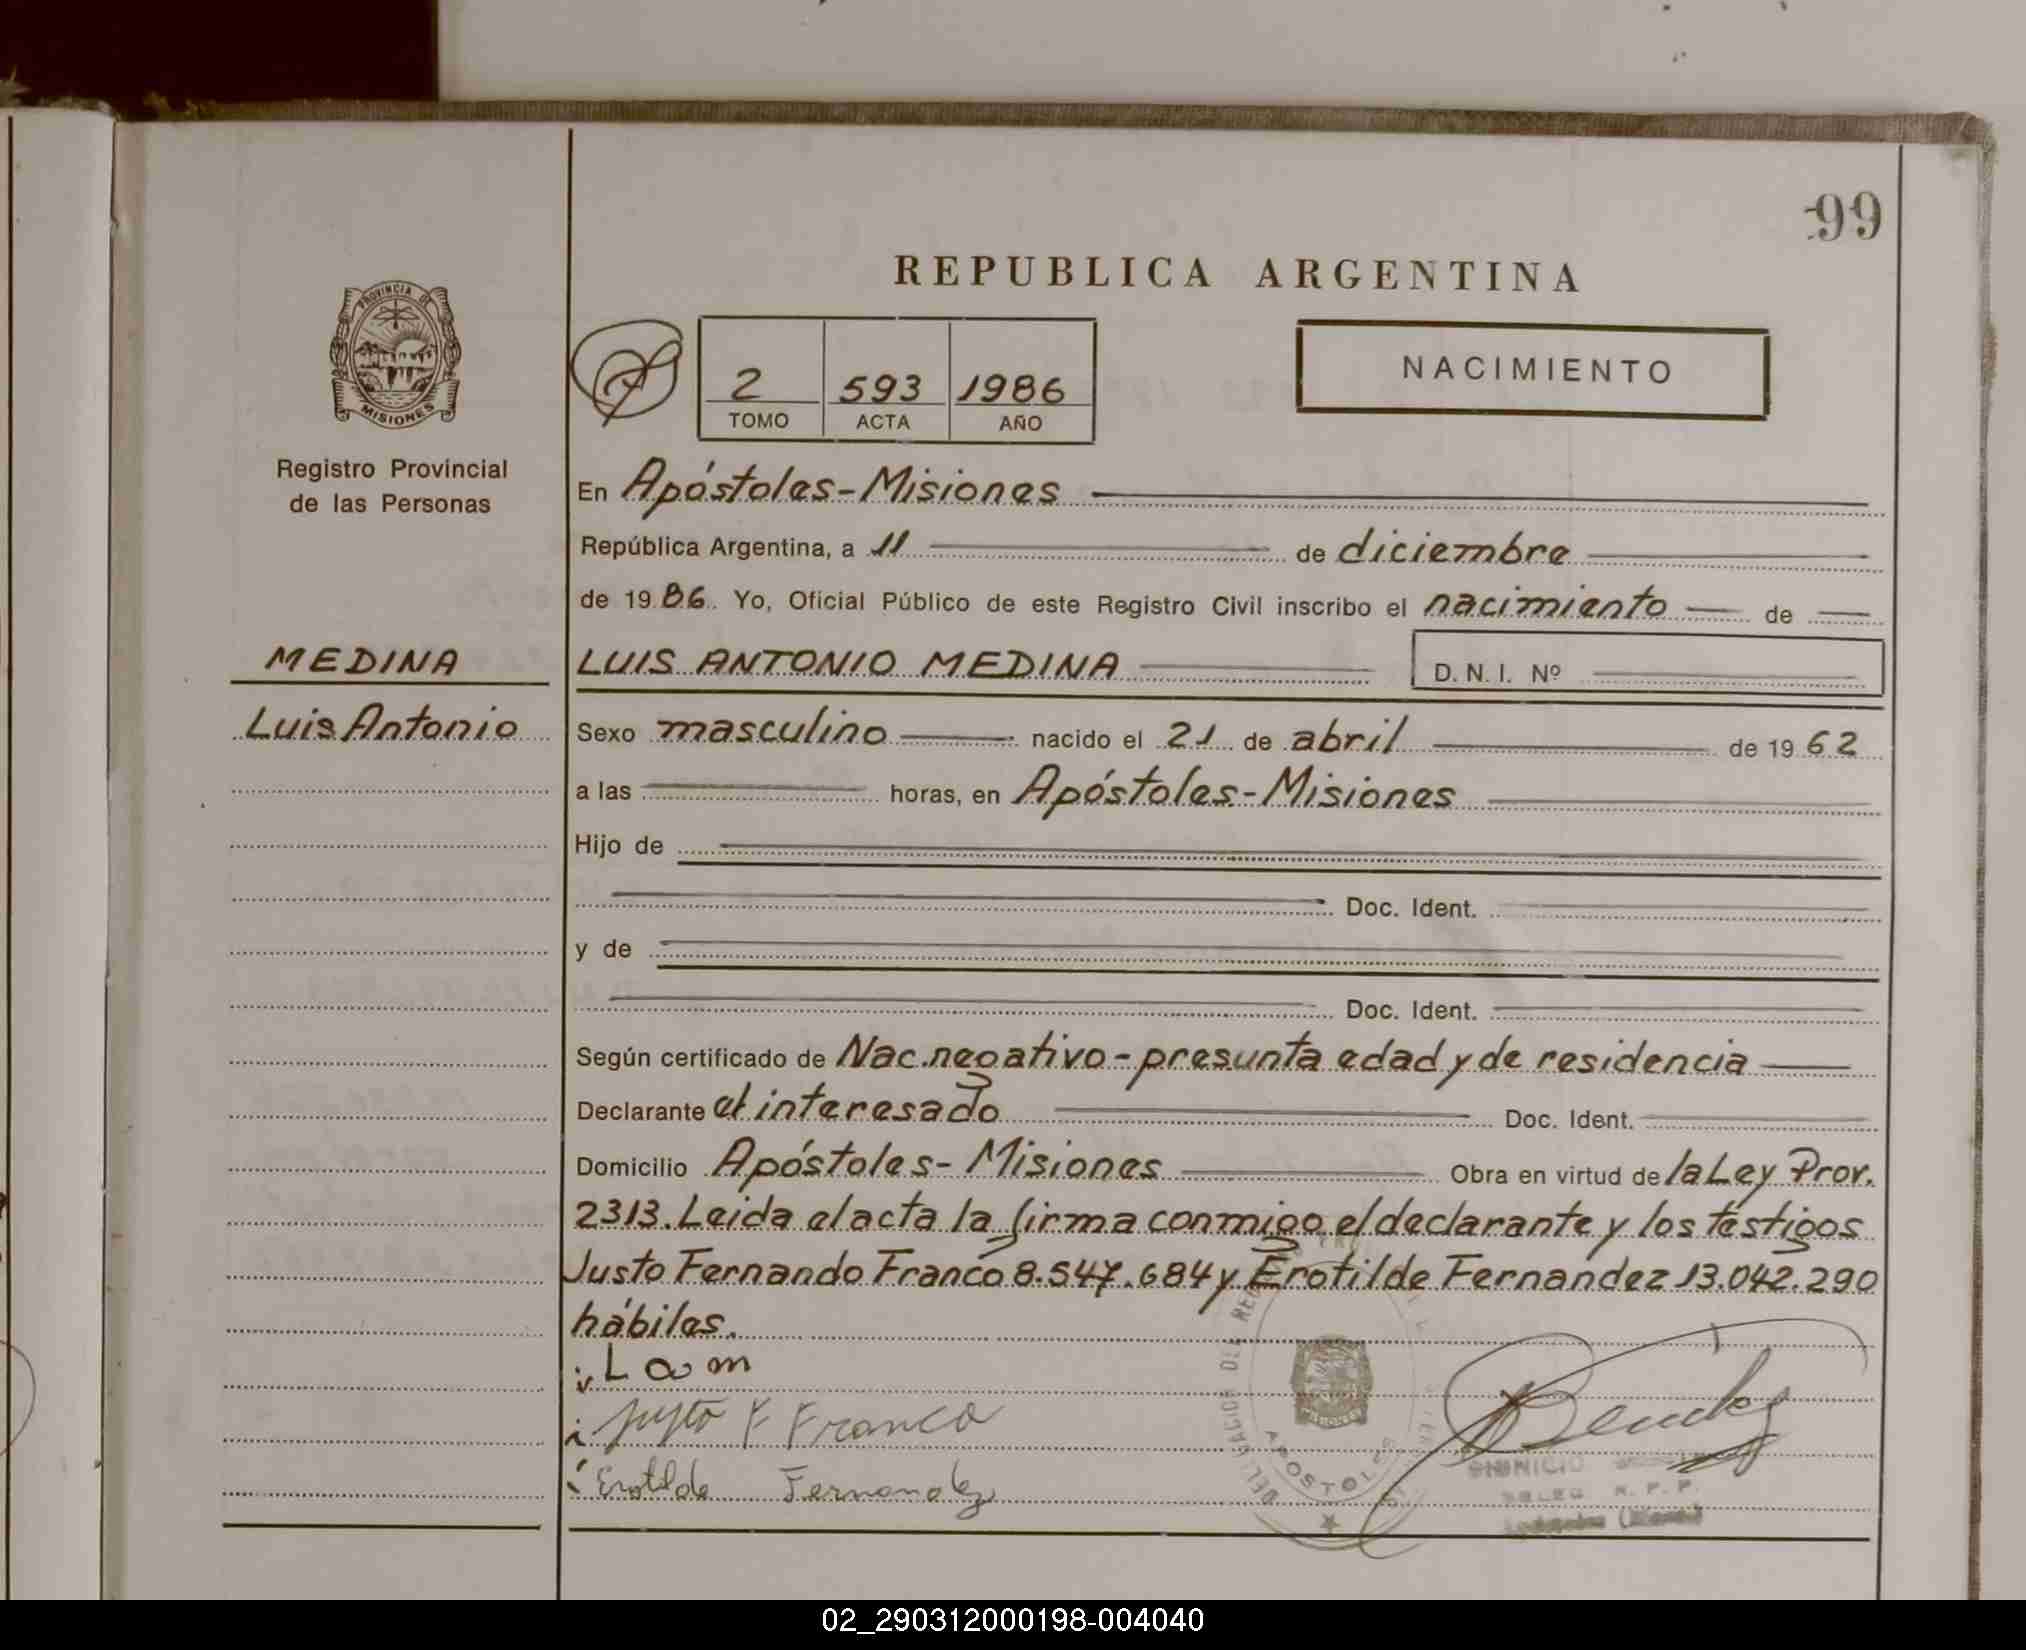 99
REPUBLICA ARGENTINA
PROVINCIA DE
MISIONES
Registro Provincial
de las Personas
2 593 1986
TOMO ACTA AÑO
NACIMIENTO
En Apóstoles-Misiones
República Argentina, a 11 de diciembre
de 1986. Yo, Oficial Público de este Registro Civil inscribo el nacimiento de
MEDINA
LUIS ANTONIO MEDINA D.N.I. Nº
Luis Antonio
Sexo masculino nacido el 21 de abril de 1962
a las horas, en Apóstoles-Misiones
Hijo de
Doc. Ident.
y de
Doc. Ident.
Según certificado de Nac.negativo-presunta edad y de residencia
Declarante el interesado Doc. Ident.
Domicilio Apóstoles-Misiones Obra en virtud de la Ley Prov.
2313. Leida el acta la firma conmigo el declarante y los testigos
Justo Fernando Franco 8.547.684 y Erotilde Fernandez 13.042.290
hábiles.
L a m
Justo F Franco
Erotilde Fernandez
DELEGACION DEL
APOSTOLES
MISIONES
R. P. P.
02_290312000198-004040